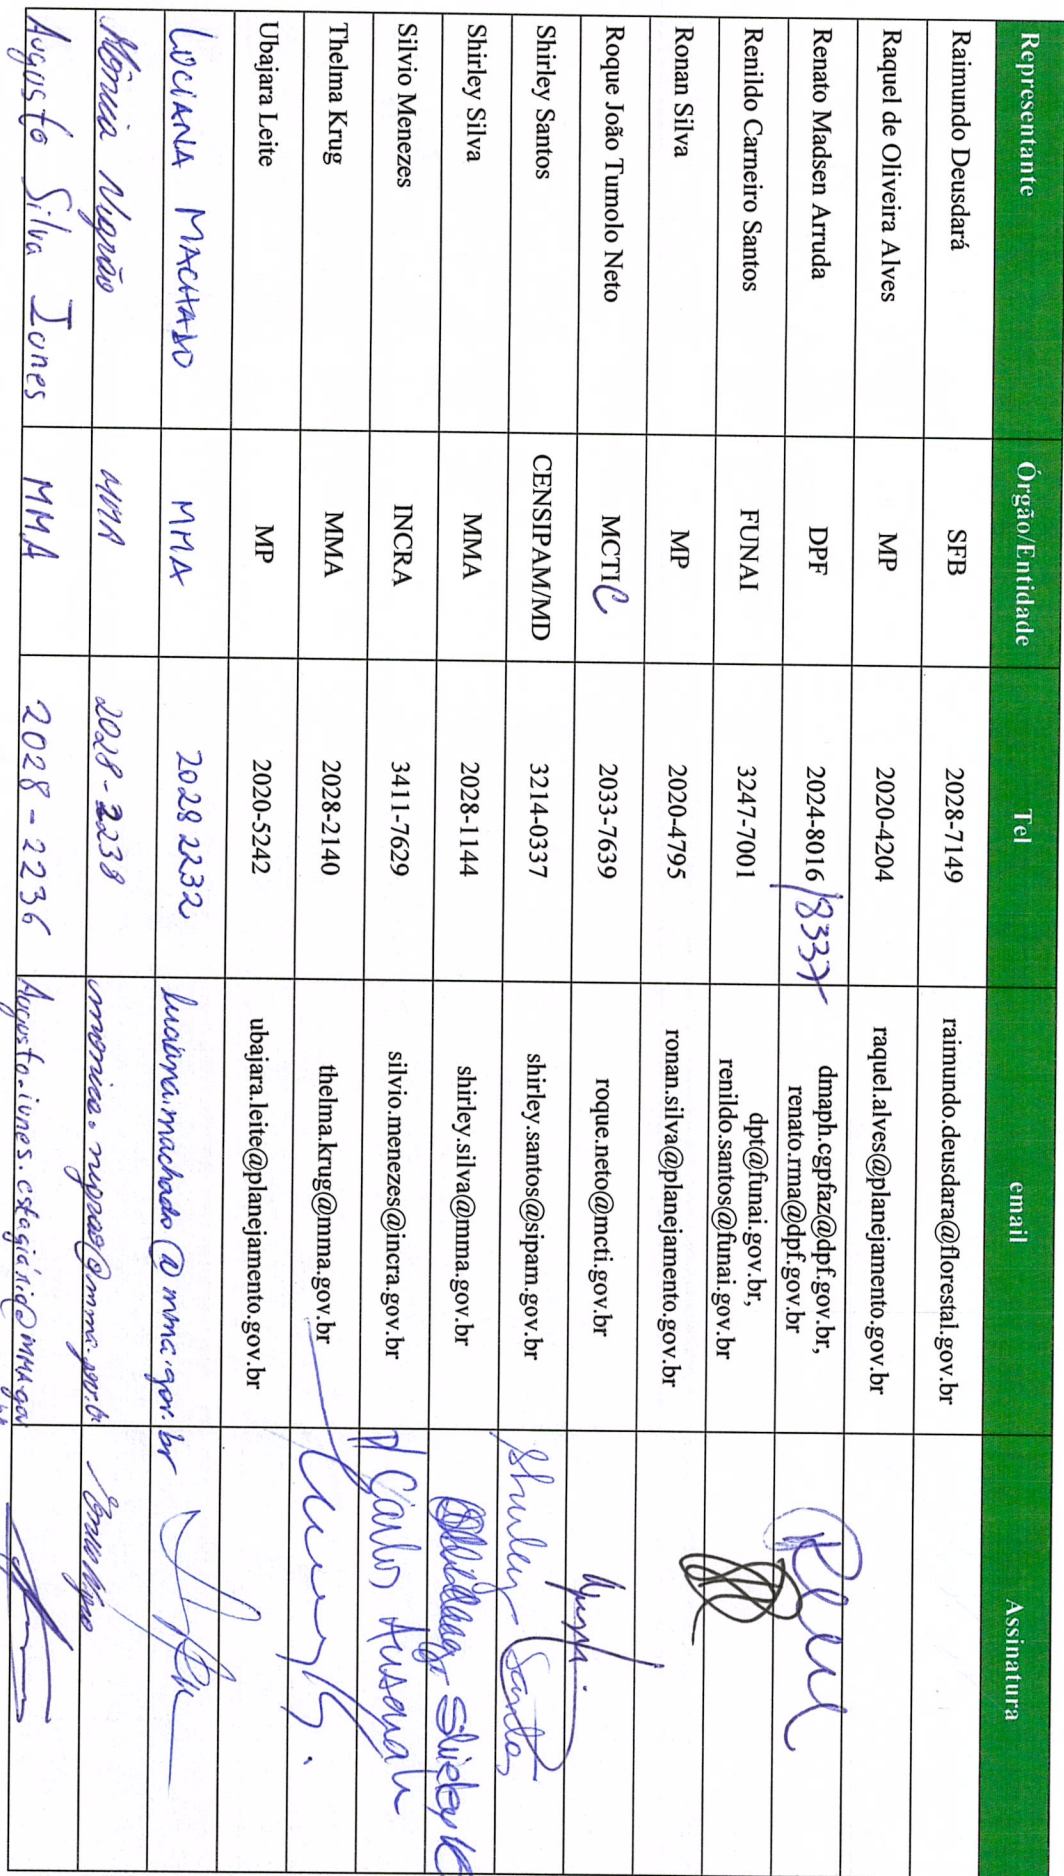 Representante Órgão/Entidade Tel email Assinatura
Raimundo Deusdará SFB 2028-7149 raimundo.deusdara@florestal.gov.br
Raquel de Oliveira Alves MP 2020-4204 raquel.alves@planejamento.gov.br
Renato Madsen Arruda DPF 2024-8016 /8337 dmaph.cgpfaz@dpf.gov.br,
renato.rma@dpf.gov.br
Renildo Carneiro Santos FUNAI 3247-7001 dpt@funai.gov.br,
renildo.santos@funai.gov.br
Ronan Silva MP 2020-4795 ronan.silva@planejamento.gov.br
Roque João Tumolo Neto MCTIC 2033-7639 roque.neto@mcti.gov.br
Shirley Santos CENSIPAM/MD 3214-0337 shirley.santos@sipam.gov.br Shirley Santos
Shirley Silva MMA 2028-1144 shirley.silva@mma.gov.br
Silvio Menezes INCRA 3411-7629 silvio.menezes@incra.gov.br p/ Carlos
Thelma Krug MMA 2028-2140 thelma.krug@mma.gov.br
Ubajara Leite MP 2020-5242 ubajara.leite@planejamento.gov.br
LUCIANA MACHADO MMA 2028 2232 luciana.machado@mma.gov.br
Mônica Negrão MMA 2028-2238 monica.negrao@mma.gov.br
Augusto Silva Iunes MMA 2028-2236 Augusto.iunes.estagiário@MMA.gov.br